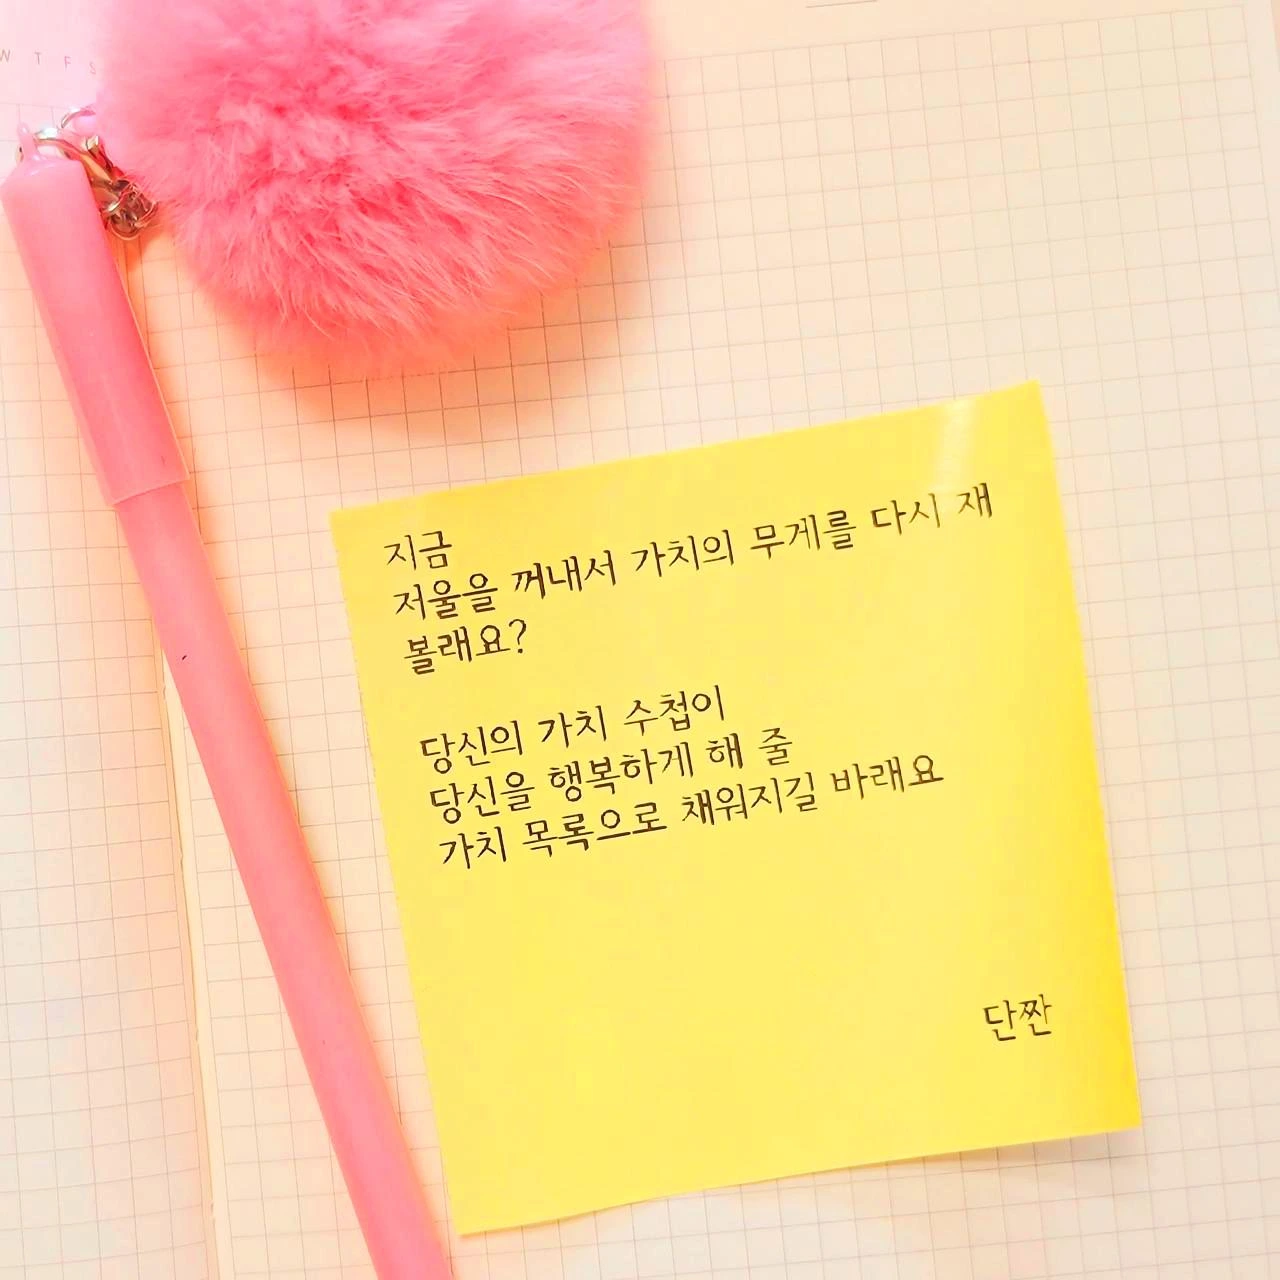 W T F S
지금
저울을 꺼내서 가치의 무게를 다시 재
볼래요?
당신의 가치 수첩이
당신을 행복하게 해 줄
가치 목록으로 채워지길 바래요
단짠